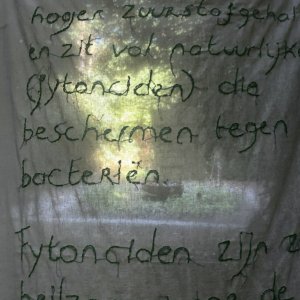 hoger zuurstofgehal
en zit vol natuurlijk
(fytonciden) die
beschermen tegen
bacteriën.
Fytonciden zijn z
heilz